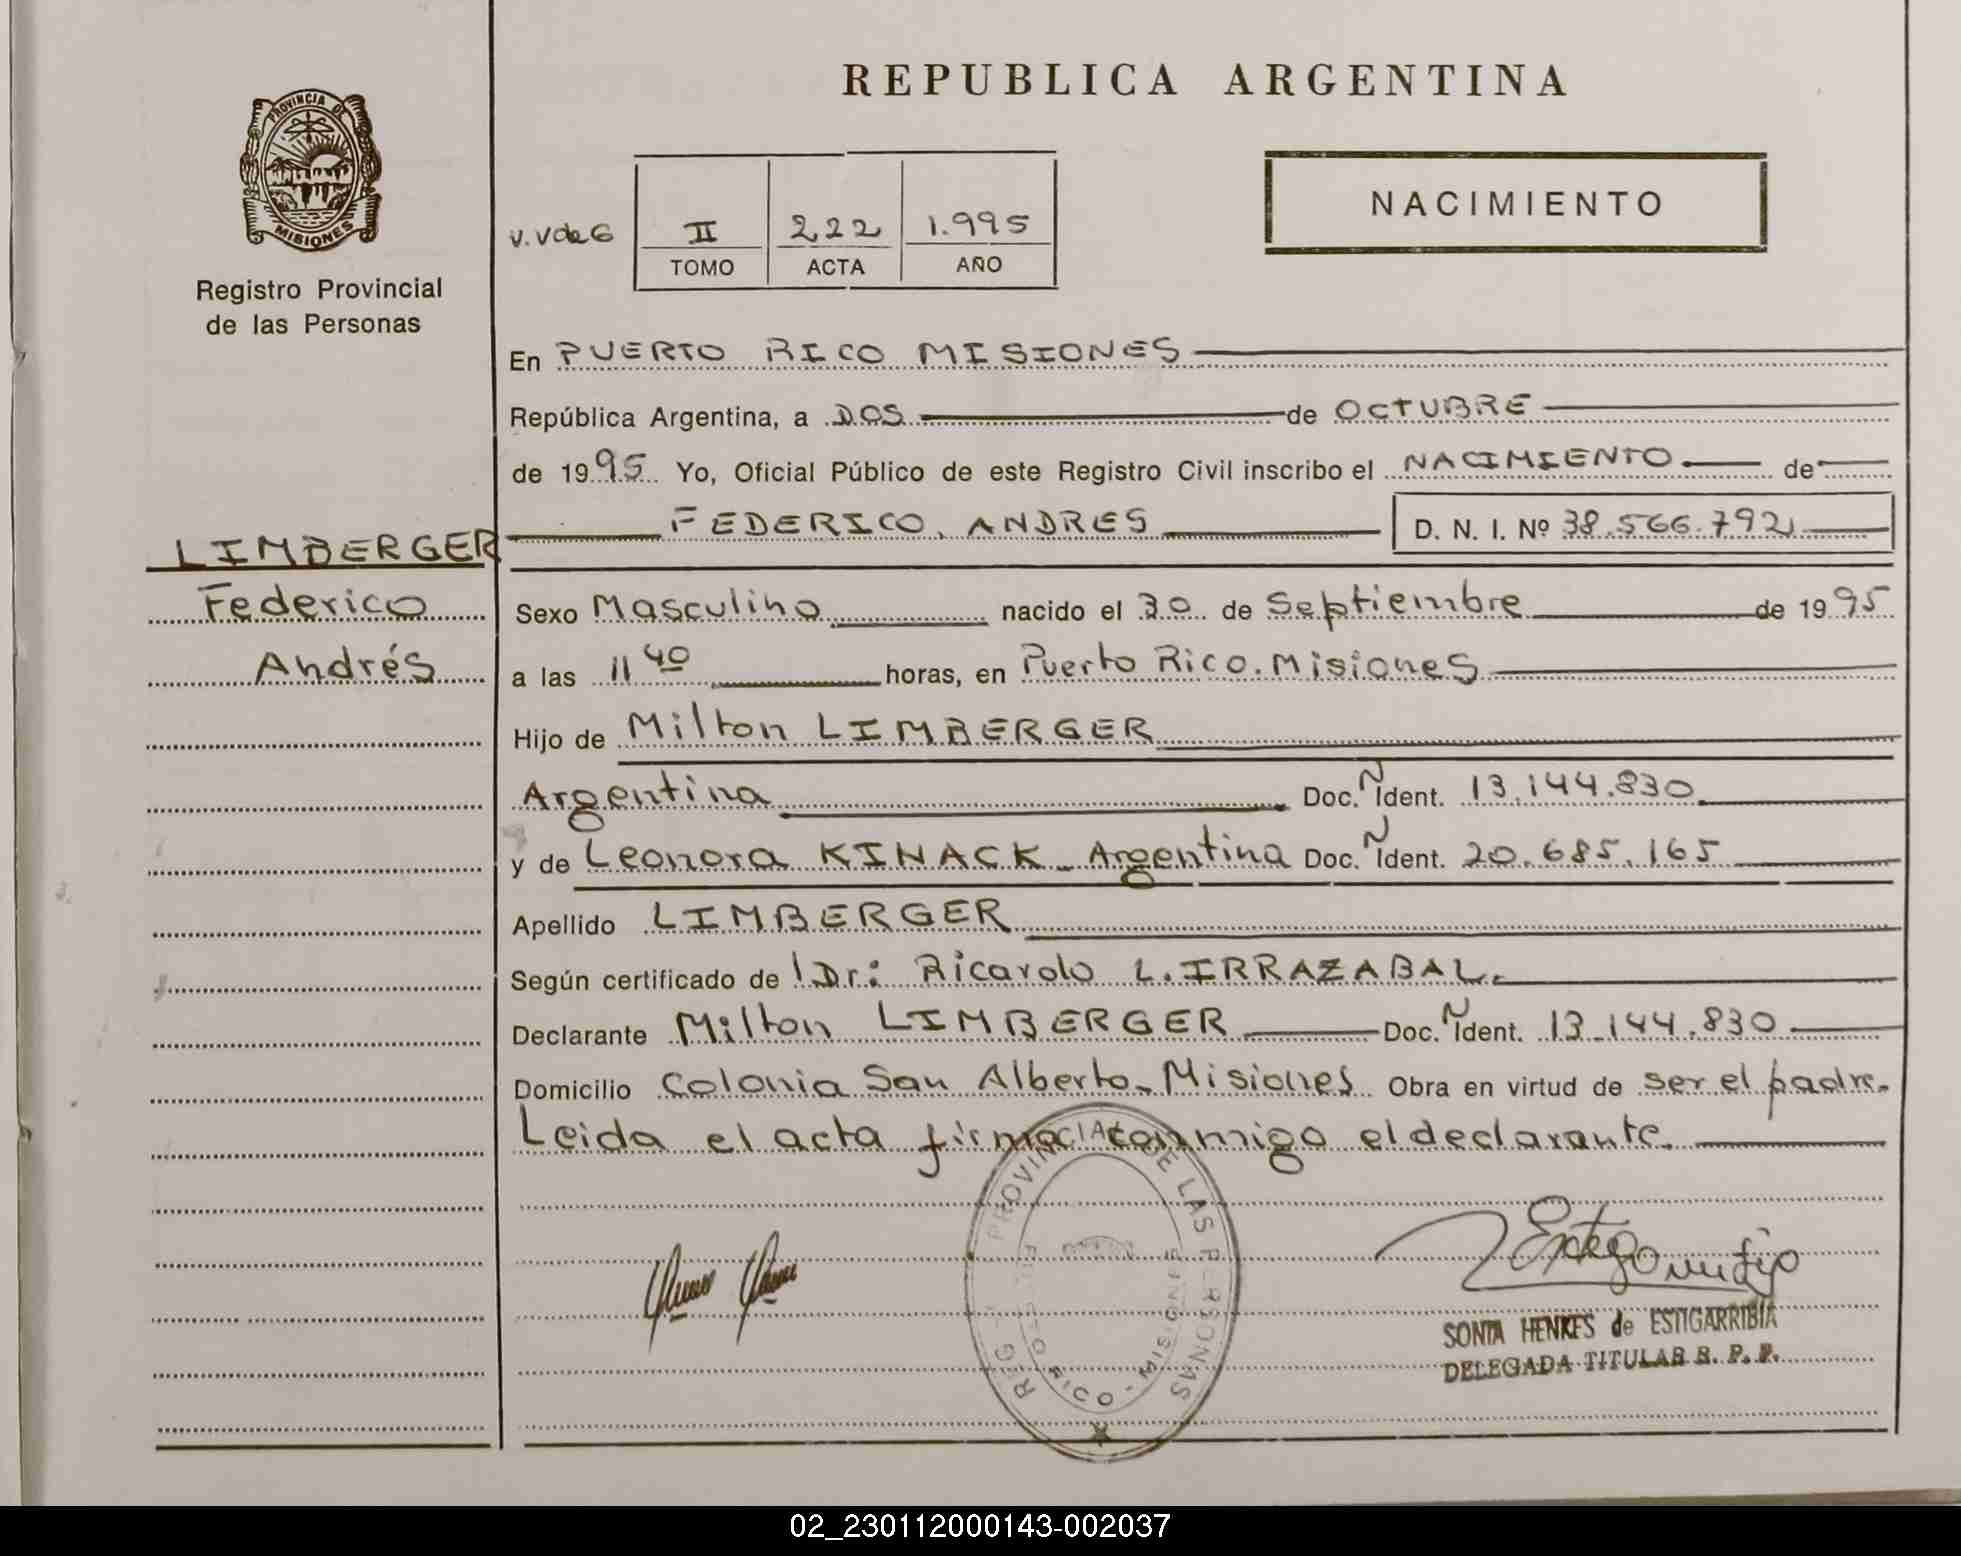 REPUBLICA ARGENTINA
PROVINCIA DE
MISIONES
Registro Provincial
de las Personas
NACIMIENTO
V.VdeG
II 222 1.995
TOMO ACTA AÑO
En PUERTO RICO MISIONES
República Argentina, a DOS de OCTUBRE
de 1995 Yo, Oficial Público de este Registro Civil inscribo el NACIMIENTO de
FEDERICO, ANDRES D. N. I. Nº 38.566.792
LIMBERGER
Federico
Andrés
Sexo Masculino nacido el 30 de Septiembre de 1995
a las 11 40 horas, en Puerto Rico. Misiones
Hijo de Milton LIMBERGER
Argentina Doc. N Ident. 13.144.830
y de Leonora KINACK - Argentina Doc. N Ident. 20.685.165
Apellido LIMBERGER
Según certificado de Dr: Ricardo L. IRRAZABAL.
Declarante Milton LIMBERGER Doc. N Ident. 13.144.830
Domicilio Colonia San Alberto - Misiones Obra en virtud de ser el padre.
Leida el acta firma conmigo el declarante.
REG PROVINCIAL DE LAS PERSONAS
SONIA HENKES de ESTIGARRIBIA
DELEGADA TITULAR R. P. P.
02_230112000143-002037